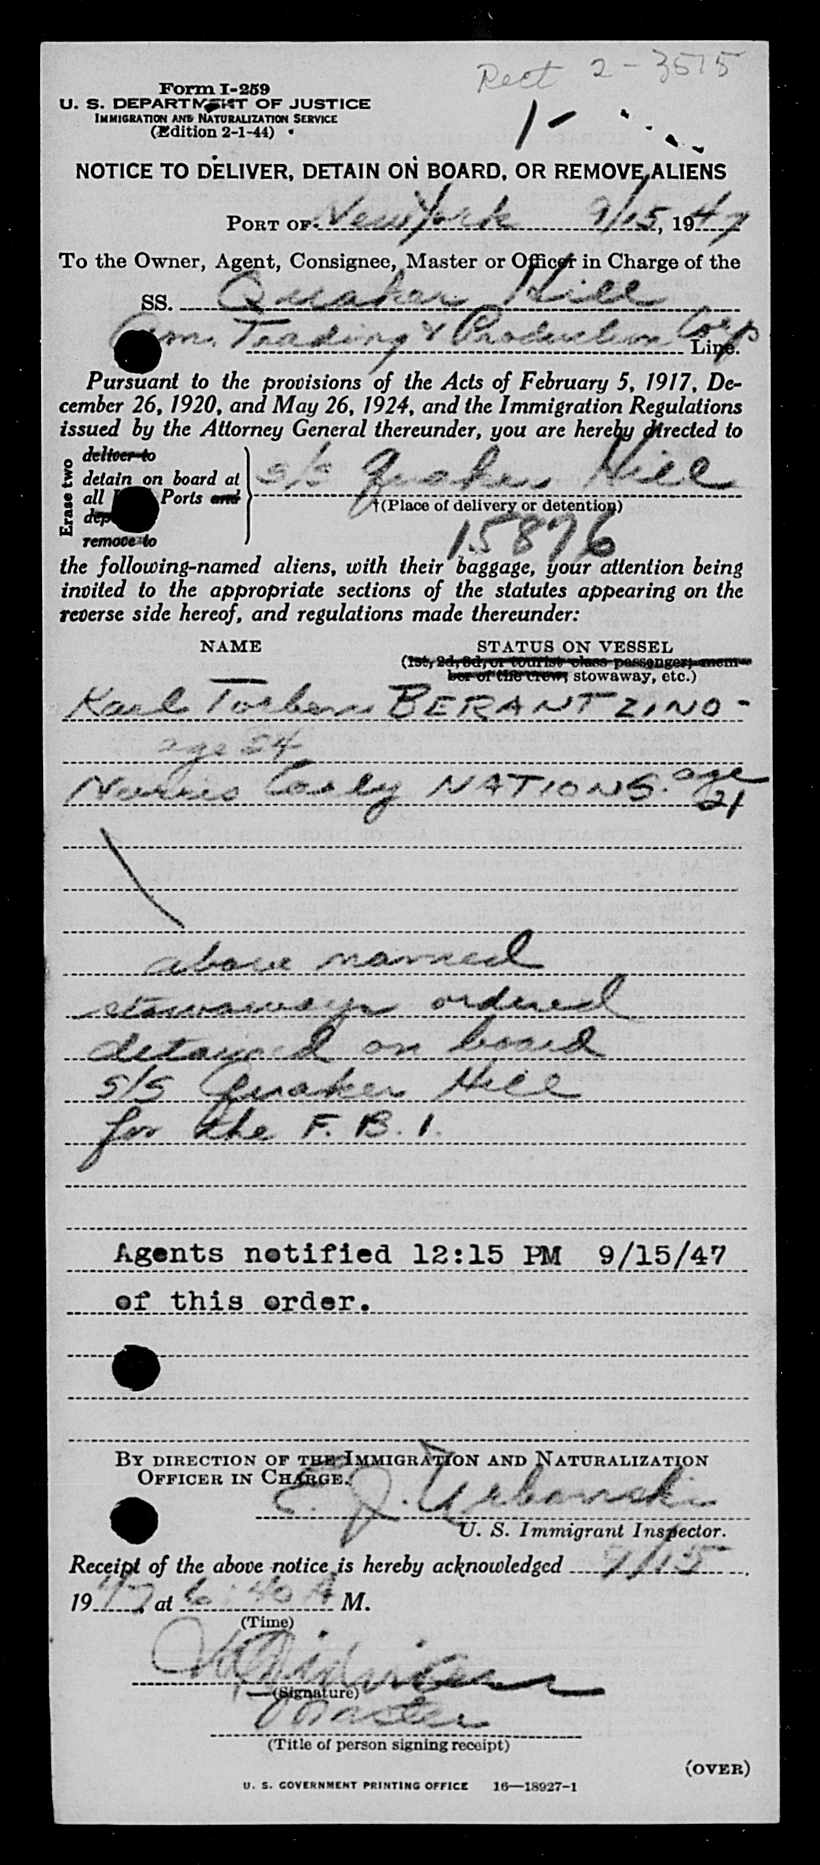 Rect 2-3515
Form I-259
U. S. DEPARTMENT OF JUSTICE
IMMIGRATION AND NATURALIZATION SERVICE
(Edition 2-1-44)
1-
NOTICE TO DELIVER, DETAIN ON BOARD, OR REMOVE ALIENS
PORT OF New York 9/15, 1947
To the Owner, Agent, Consignee, Master or Officer in Charge of the
SS. Quaker Hill
Am. Trading & Production Corp Line.
Pursuant to the provisions of the Acts of February 5, 1917, De-
cember 26, 1920, and May 26, 1924, and the Immigration Regulations
issued by the Attorney General thereunder, you are hereby directed to
Erase two
deliver to
detain on board at s/s Quaker Hill
all Ports and
(Place of delivery or detention)
remove to
15876
the following-named aliens, with their baggage, your attention being
invited to the appropriate sections of the statutes appearing on the
reverse side hereof, and regulations made thereunder:
NAME STATUS ON VESSEL
(1st, 2d, 3d, or tourist class passenger, mem-
ber of the crew, stowaway, etc.)
Karl Torben BERANTZINO-
age 24
Norris Cosly NATIONS. age
21
above named
stowaways ordered
detained on board
s/s Quaker Hill
for the F. B. I.
Agents notified 12:15 PM 9/15/47
of this order.
BY DIRECTION OF THE IMMIGRATION AND NATURALIZATION
OFFICER IN CHARGE.
E. J. Urbanski
U. S. Immigrant Inspector.
Receipt of the above notice is hereby acknowledged 9/15,
1947, at 6:40 A M.
(Time)
(Signature)
Master
(Title of person signing receipt)
(OVER)
U. S. GOVERNMENT PRINTING OFFICE 16—18927-1